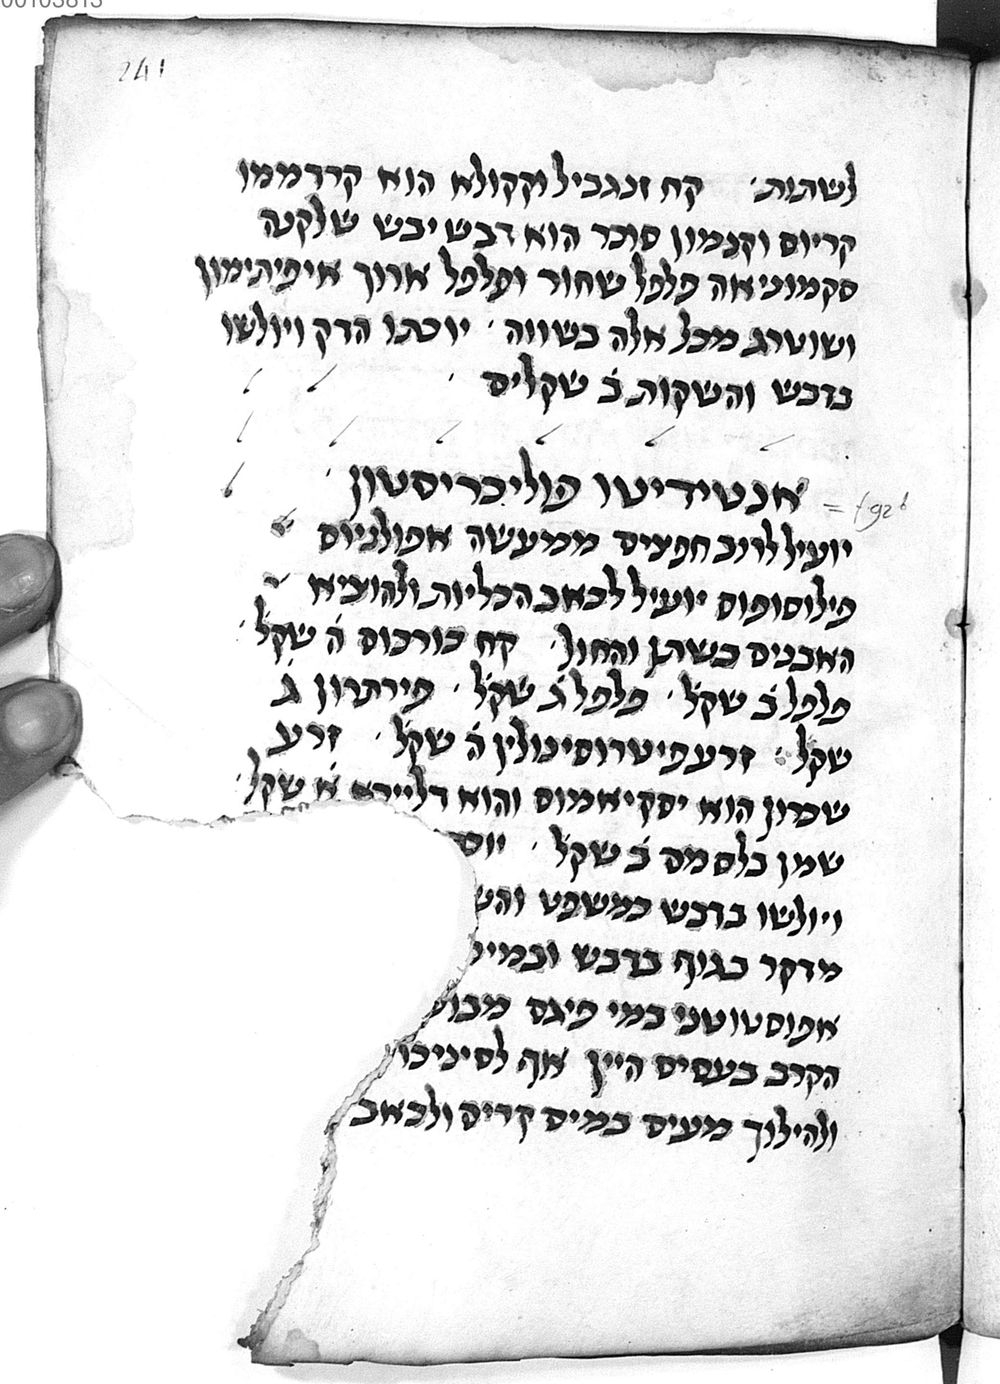 00103813
241
לשתות׳ קח זנגביל וקקולא הוא קרדממו
קריוס וקנמון סוכר הוא דבש יבש שלקטה
סקמוניאה פלפל שחור ופלפל ארוך איפיתימון
ושוטרג מכל אלה בשווה ׳ יוכתו הדק ויולשו
בדבש והשקות ב̇ שקלים ׳
אנטידיטו פוליכריסטון ׳
= f 92b
יועיל לרוב חפצים ממעשה אפולניוס
פילוסופוס יועיל לכאב הכליות ולהוציא
האבנים בשתן והחול׳ קח כורכוס ה̇ שקל ׳
פלפל ב̇ שקל ׳ פלפל ג̇ שקל ׳ פירתרון ג̇
שקל ׳ זרע פיטרוסינולין ה̇ שקל ׳ זרע
שכרון הוא יסקיאמוס והוא א̇ שקל ׳
שמן בלסמס ב̇ שקל ׳
ויולשו בדבש כמשפט
מדקר בגוף בדבש
אפוסטוטני במי פיגם
הקרב בעסיס היין אף
ולהילוך מעים במים קרים ולכאב